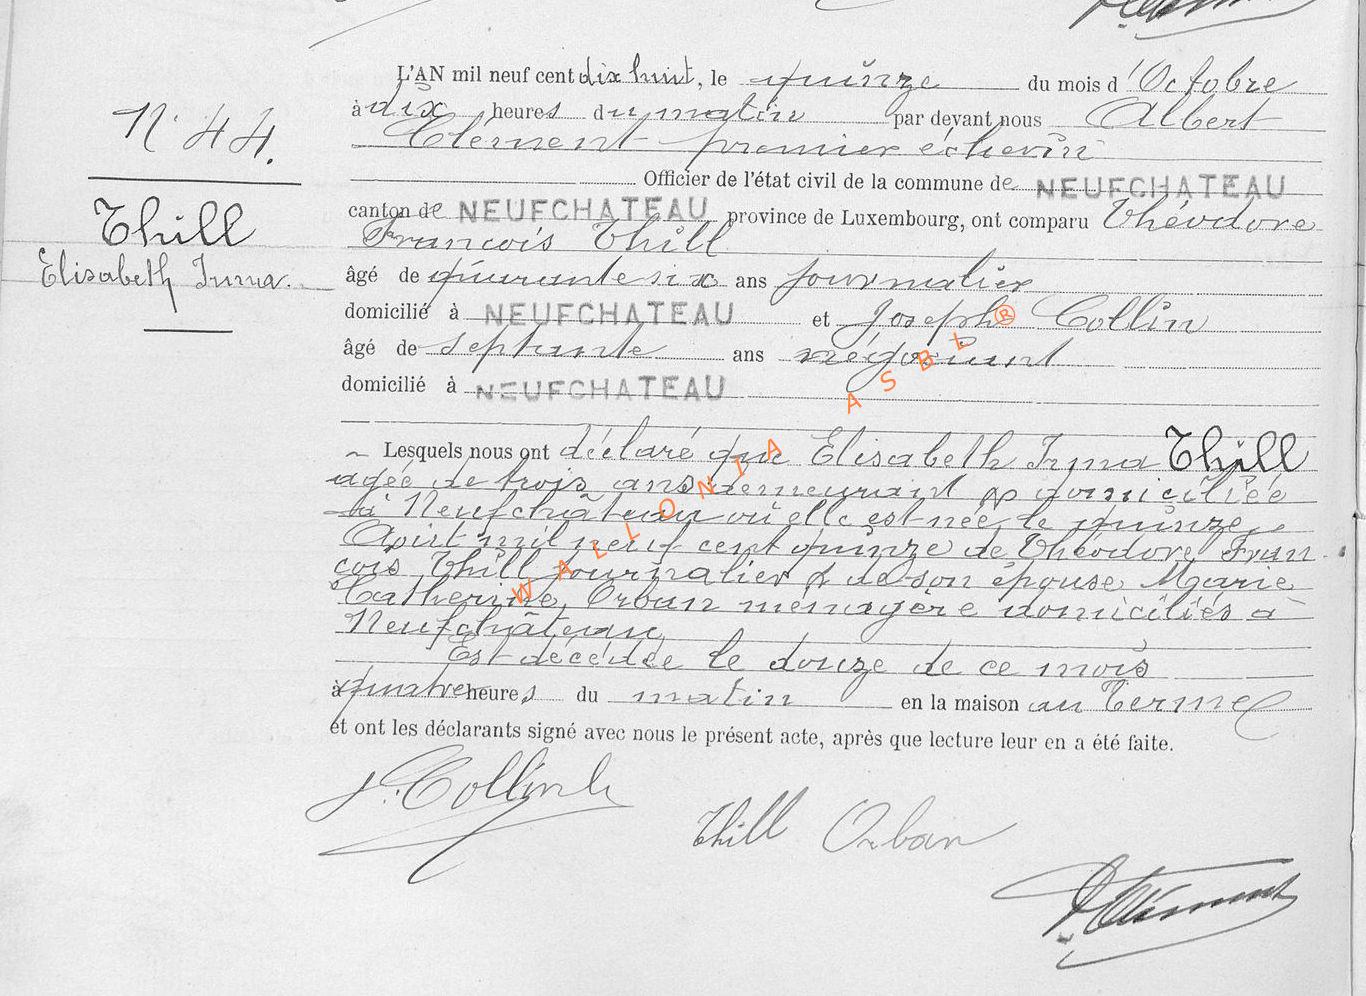 N° 44.
Thill
Elisabeth Irma.
L'AN mil neuf cent dix huit, le quinze du mois d'Octobre
à dix heures du matin par devant nous Albert
Clement premier échevin
Officier de l'état civil de la commune de NEUFCHATEAU
canton de NEUFCHATEAU province de Luxembourg, ont comparu Théodore
François Thill
âgé de quarante six ans journalier
domicilié à NEUFCHATEAU et Joseph Collin
âgé de septante ans négociant
domicilié à NEUFCHATEAU
Lesquels nous ont déclaré que Elisabeth Irma Thill
agée de trois ans demeurant & domiciliée
à Neufchâteau où elle est née le quinze
Août mil neuf cent quinze de Théodore Fran
çois Thill journalier & de son épouse Marie
Catherine Orban ménagère domiciliés à
Neufchâteau
Est décédée le douze de ce mois
à quatre heures du matin en la maison au Terme
et ont les déclarants signé avec nous le présent acte, après que lecture leur en a été faite.
J. Collin
Thill Orban
Clément
WALLONIA ASBL ®